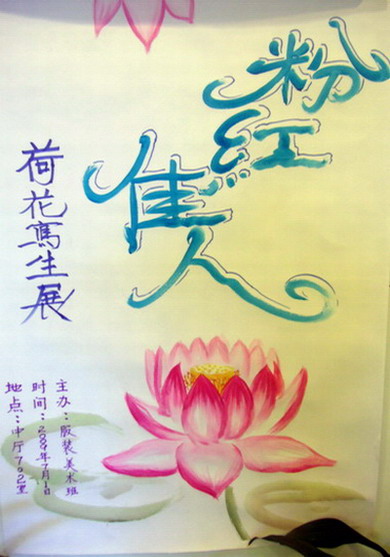 粉红
佳人
荷花冩生展
主办：服装美术班
时间：2009年7月1日
地点：中厅702室